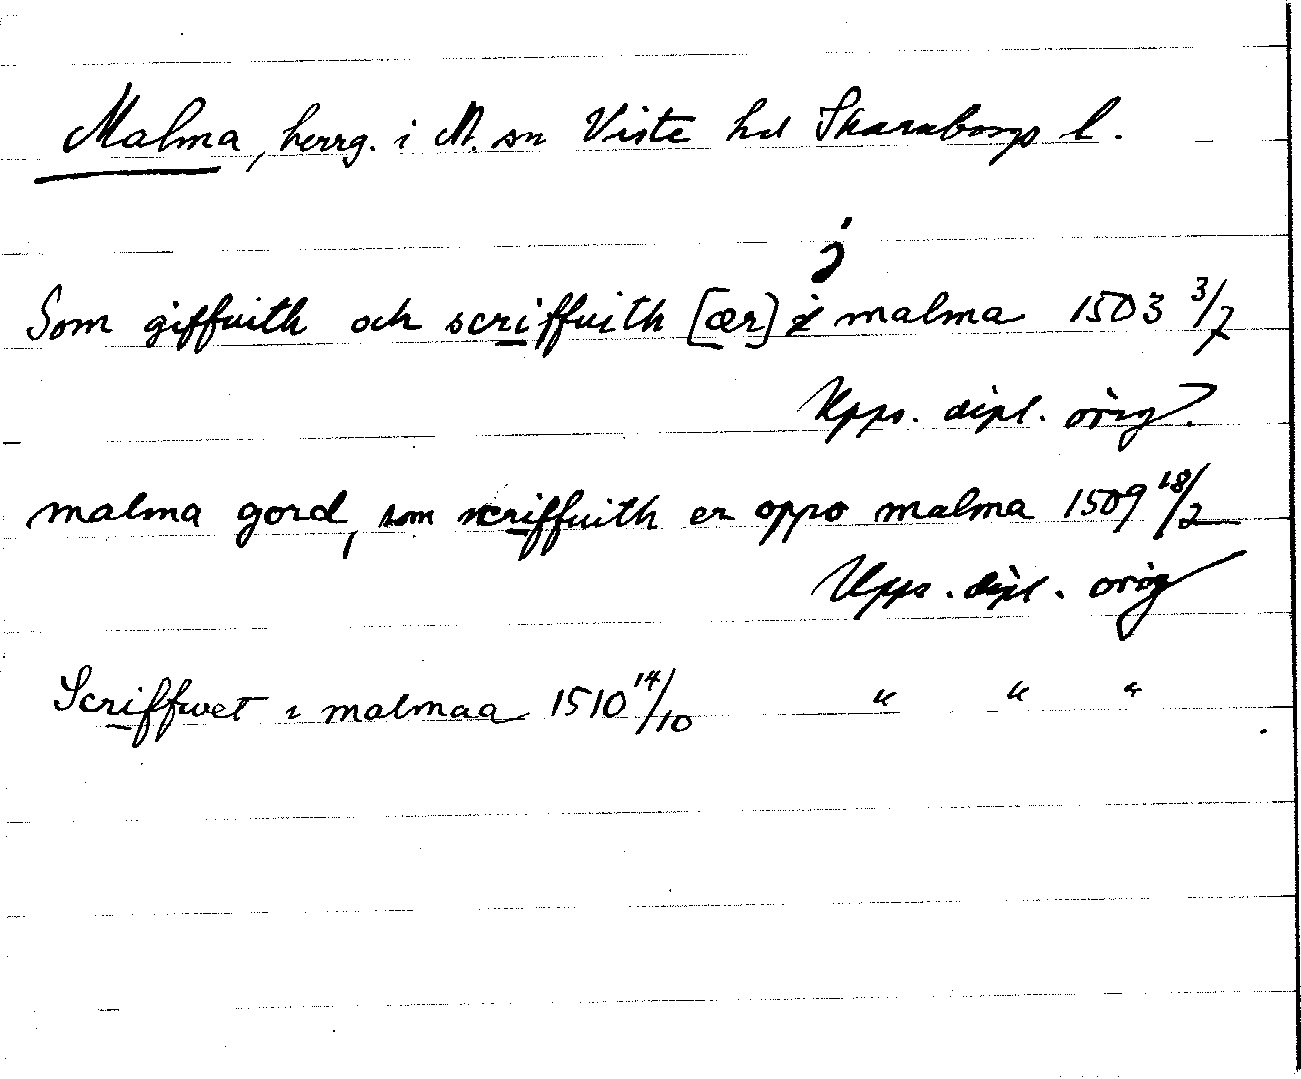 Malma, herrg. i M. sn Viste hd Skaraborgs l.
j
Som giffuith och scriffuith [ær] i malma 1503 3/7
Upps. dipl. orig.
malma gord, som scriffuith er oppo malma 1509 18/2
Upps. dipl. orig
Scriffwet i malmaa 1510 14/10 " " "